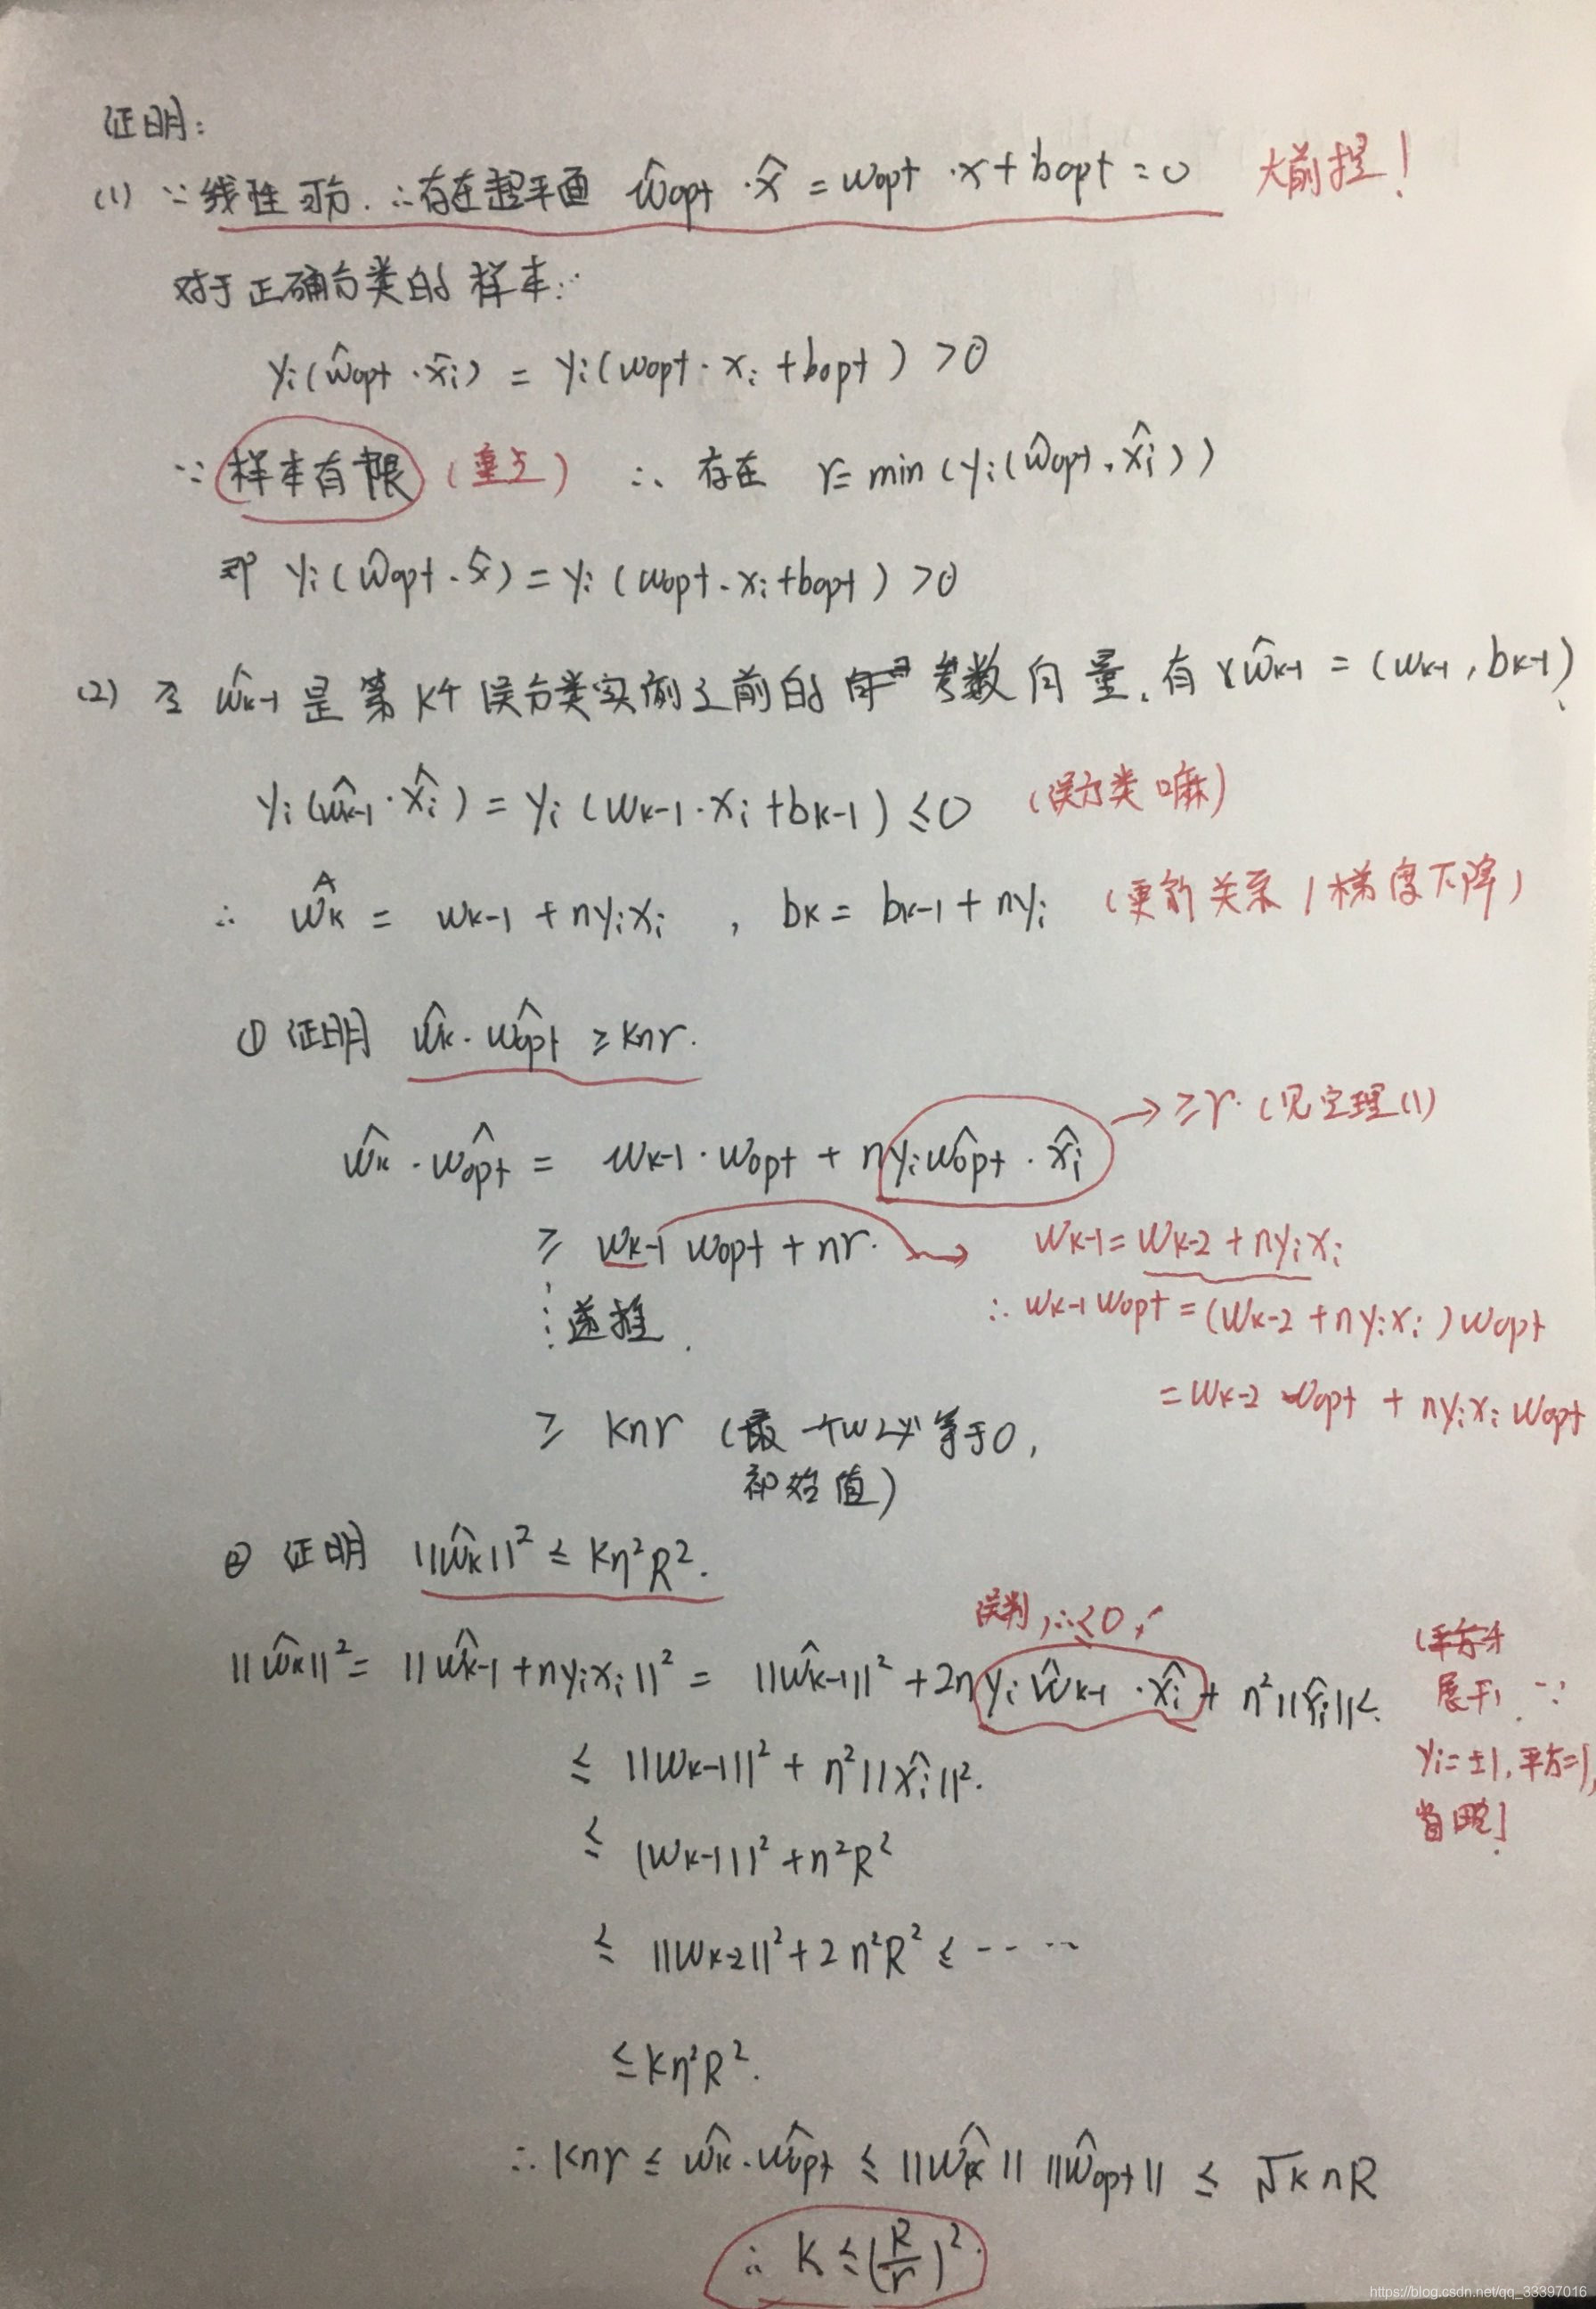 证明:
(1) ∵ 线性可分. ∴存在超平面 ŵopt · x̂ = wopt · x + bopt = 0 大前提!
对于正确分类的样本:
yi(ŵopt · x̂i) = yi(wopt · xi + bopt) > 0
∵ 样本有限 (重点) ∴ 存在 r = min(yi(ŵopt · x̂i))
即 yi(ŵopt · x̂) = yi(wopt · xi + bopt) > 0
(2) 令 ŵk-1 是第k个误分类实例之前的参数向量, 有 ŵk-1 = (wk-1, bk-1)
yi(ŵk-1 · x̂i) = yi(wk-1 · xi + bk-1) ≤ 0 (误分类嘛)
∴ ŵk = wk-1 + ηyixi , bk = bk-1 + ηyi (更新关系 / 梯度下降)
① 证明 ŵk · ŵopt ≥ kηr.
→ ≥ r. (见定理(1)
ŵk · ŵopt = wk-1 · wopt + ηyiŵopt · x̂i
≥ wk-1 wopt + ηr. → wk-1 = wk-2 + ηyixi
⋮ 递推. ∴ wk-1 wopt = (wk-2 + ηyixi) wopt
= wk-2 wopt + ηyixi wopt
≥ kηr (最一个w必等于0,
初始值)
② 证明 ||ŵk||² ≤ kη²R².
误判, ∴<0,
||ŵk||² = ||ŵk-1 + ηyixi||² = ||ŵk-1||² + 2ηyiŵk-1 · x̂i + η²||x̂i||².
(平方
展开, ∵
yi = ±1, 平方=1,
省略)
≤ ||wk-1||² + η²||x̂i||².
≤ ||wk-1||² + η²R²
≤ ||wk-2||² + 2η²R² ≤ ·· ··
≤ kη²R².
∴ kηr ≤ ŵk · ŵopt ≤ ||ŵk|| ||ŵopt|| ≤ √k ηR
∴ k ≤ (R/r)².
https://blog.csdn.net/qq_33397016